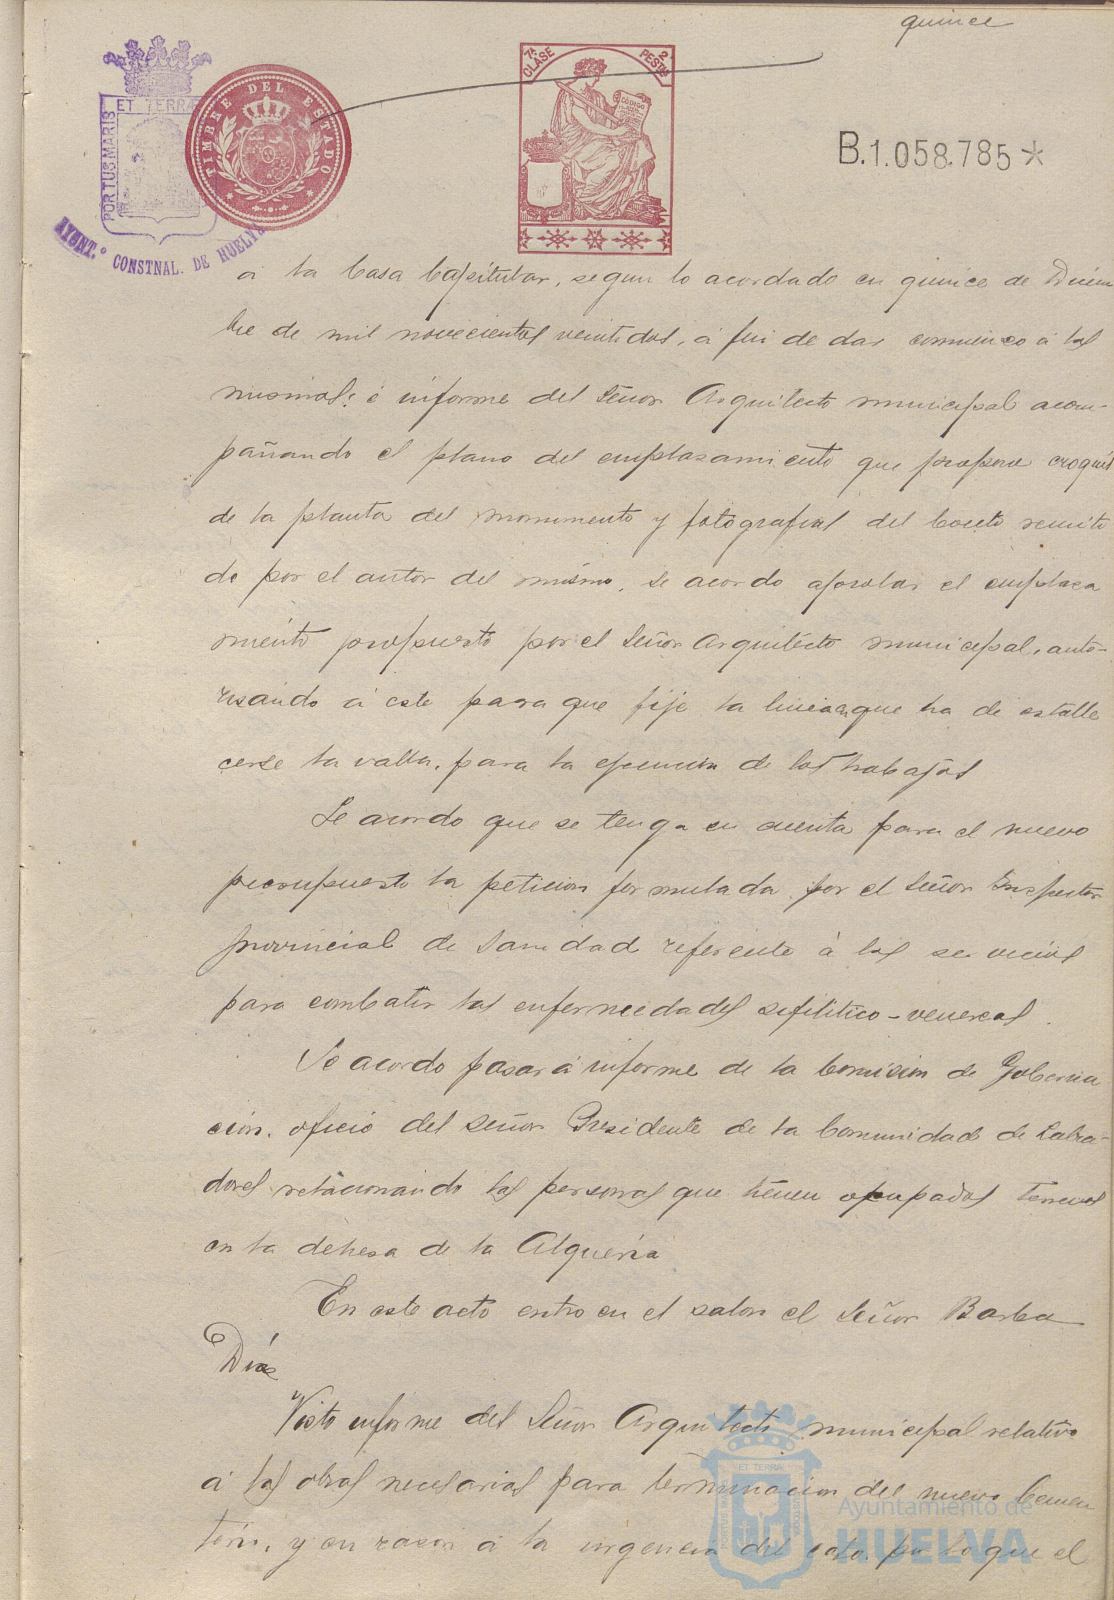 quince
ET TERRA
PORTUS MARIS
AYUNT.º CONSTNAL. DE HUELVA
TIMBRE DEL ESTADO
7ª CLASE
2 PESTS
CÓDIGO
B.1.058.785*
a la Casa Capitular, segun lo acordado en quince de Diciem
bre de mil novecientos veintidos, á fin de dar comienzo á las
mismas; é informe del Señor Arquitecto municipal acom-
pañando el plano del emplazamiento que propone croquis
de la planta del monumento y fotografias del boceto remiti
do por el autor del mismo, se acordo aprobar el emplaza
miento propuesto por el Señor Arquitecto municipal, auto-
rizando á este para que fije la linea en que ha de estable
cerse la valla, para la ejecucion de los trabajos
Se acordo que se tenga en cuenta para el nuevo
presupuesto la peticion formulada por el Señor Inspector
provincial de Sanidad referente á los servicios
para combatir las enfermedades sifilitico-venereas.
Se acordo pasar á informe de la Comision de Goberna
cion, oficio del Señor Presidente de la Comunidad de Labra-
dores relacionando las personas que tienen ocupados terrenos
en la dehesa de la Alqueria
En este acto entro en el salon el Señor Barba
Diaz
Visto informe del Señor Arquitecto municipal relativo
á las obras necesarias para terminacion del nuevo Cemen
terio, y en razon á la urgencia del caso, por lo que el
ET TERRA
PORTUS MARIS
CUSTODIA
Ayuntamiento de
HUELVA